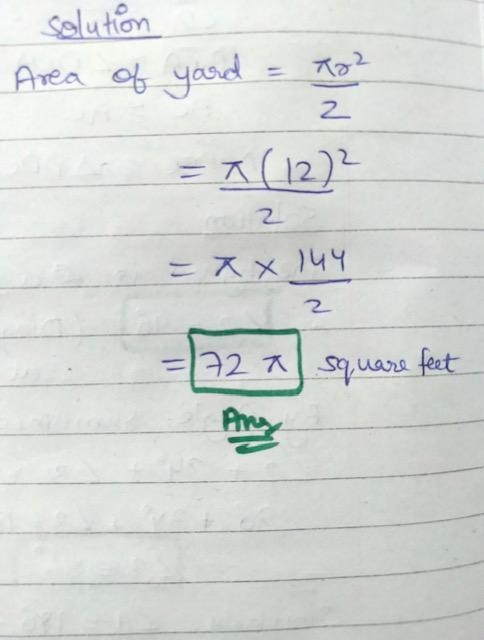 Solution
Area of yard = πr²/2
= π(12)²/2
= π × 144/2
= 72 π square feet
Ans